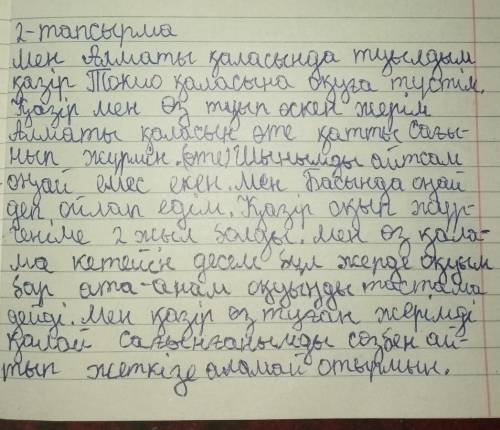 2-тапсырма
Мен Алматы қаласында туылдым
қазір Токио қаласына оқуға түстім.
Қазір мен өз туып өскен жерім
Алматы қаласын өте қатты сағы-
нып жүрмін. (өте) Шынымды айтсам
оңай емес екен. Мен басында оңай
деп ойлап едім. Қазір оқып жүр-
геніме 2 жыл болды. Мен өз қала-
ма кетейін десем бұл жерде оқуым
бар ата-анам оқуыңды тастама
дейді. Мен қазір өз туған жерімді
қалай сағынғанымды сөзбен ай-
тып жеткізе аламай отырмын.